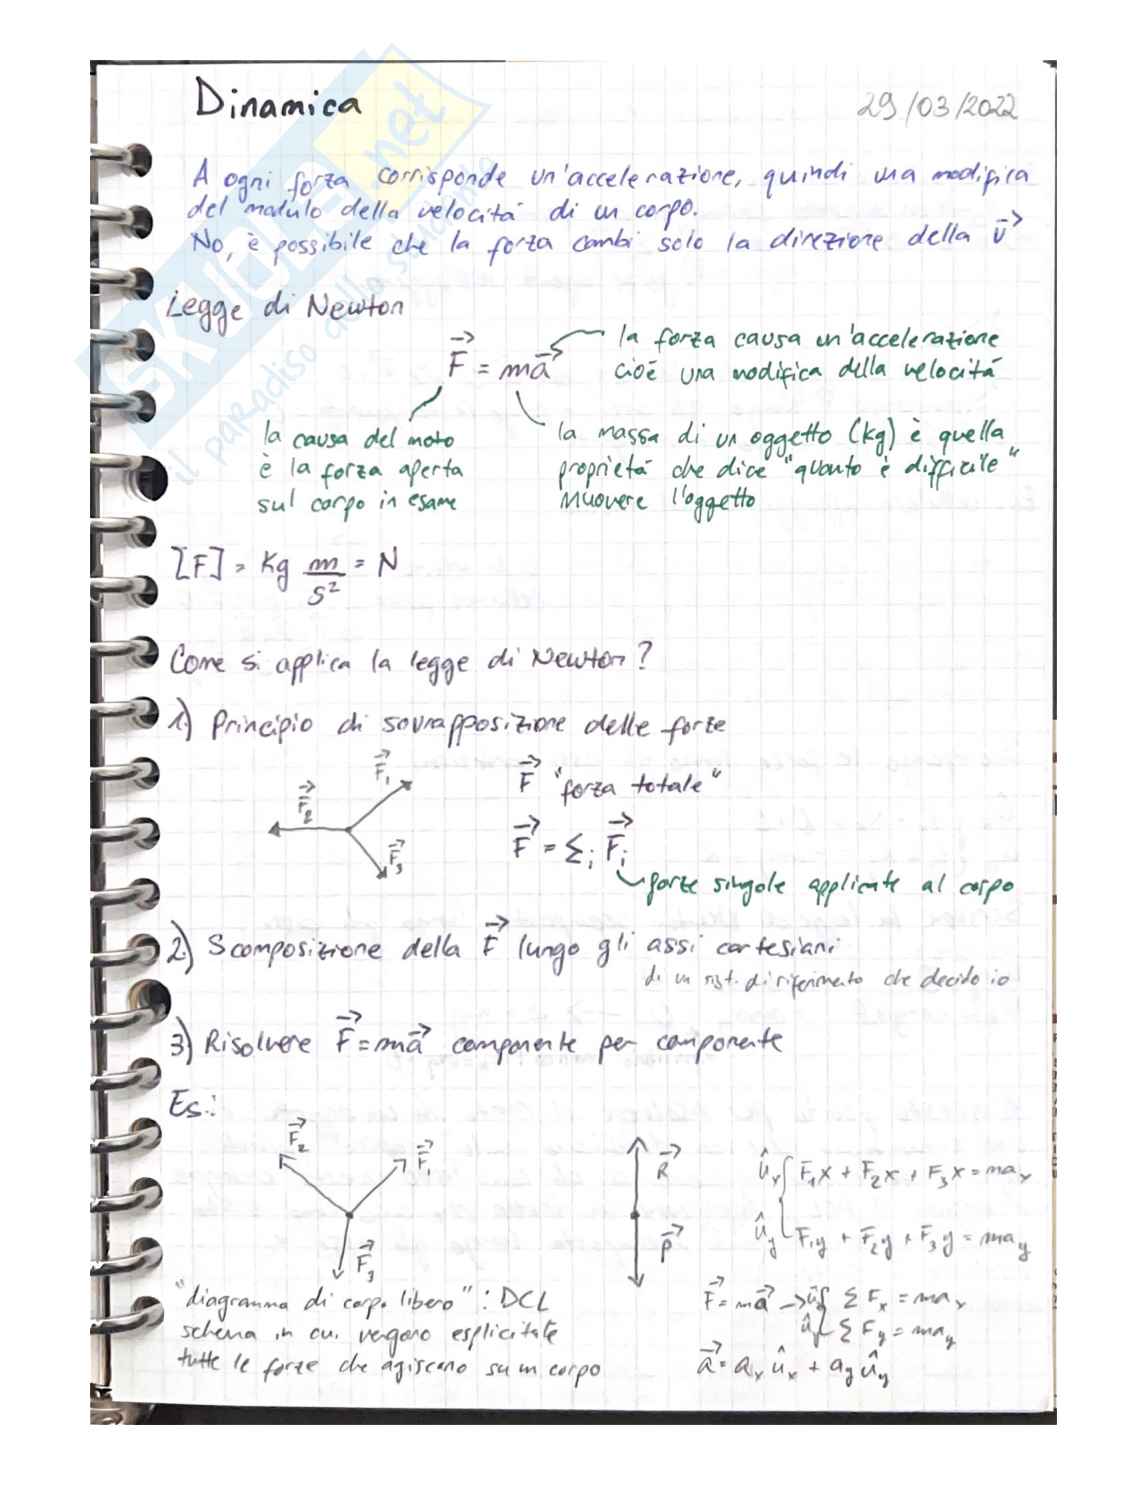 Dinamica
29/03/2022
A ogni forza corrisponde un'accelerazione, quindi una modifica
del modulo della velocità di un corpo.
No, è possibile che la forza cambi solo la direzione della v⃗
Legge di Newton
F⃗ = ma⃗
la forza causa un'accelerazione
cioè una modifica della velocità
la causa del moto
è la forza aperta
sul corpo in esame
la massa di un oggetto (kg) è quella
proprietà che dice "quanto è difficile"
muovere l'oggetto
[F] = Kg m/s² = N
Come si applica la legge di Newton?
1) Principio di sovrapposizione delle forze
F⃗₁
F⃗₂
F⃗₃
F⃗ "forza totale"
F⃗ = Σᵢ F⃗ᵢ
forze singole applicate al corpo
2) Scomposizione della F⃗ lungo gli assi cartesiani
di un sist. di riferimento che decido io
3) Risolvere F⃗ = ma⃗ componente per componente
Es.:
F⃗₂
F⃗₁
F⃗₃
R⃗
P⃗
ûₓ { F₁x + F₂x + F₃x = maₓ
û_y { F₁y + F₂y + F₃y = ma_y
"diagramma di corpo libero": DCL
schema in cui vengono esplicitate
tutte le forze che agiscono su un corpo
F⃗ = ma⃗ → ûₓ { Σ Fₓ = maₓ
û_y { Σ F_y = ma_y
a⃗ = aₓ ûₓ + a_y û_y
skuola.net
il paradiso dello studente